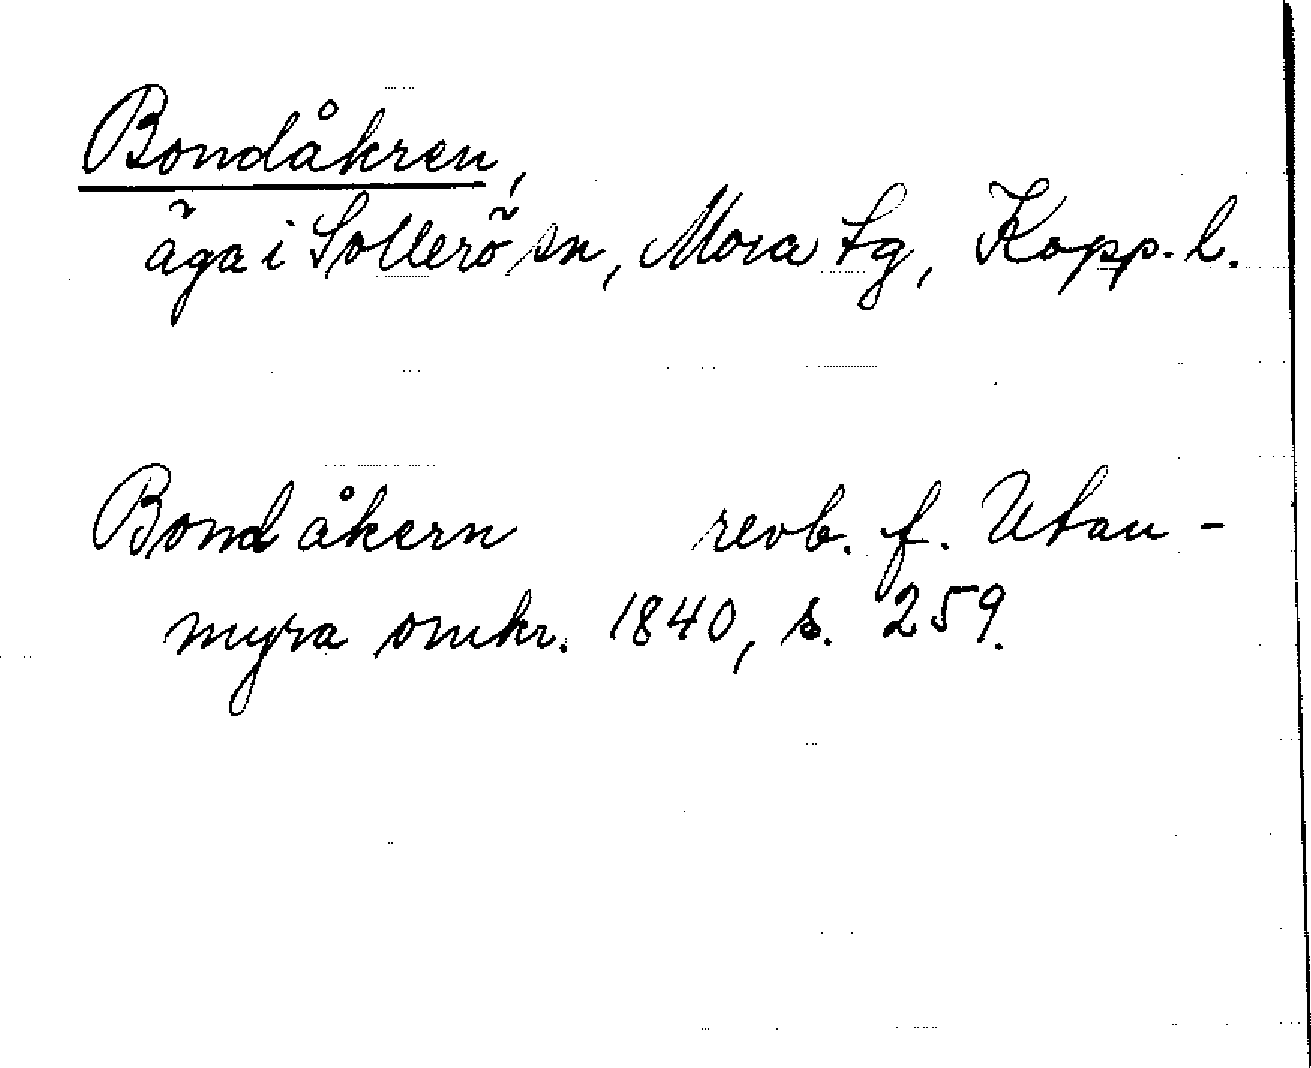 Bondåkren,
äga i Sollerö sn, Mora tg, Kopp. l.
Bondåkern revb. f. Utan-
myra omkr. 1840, s. 259.